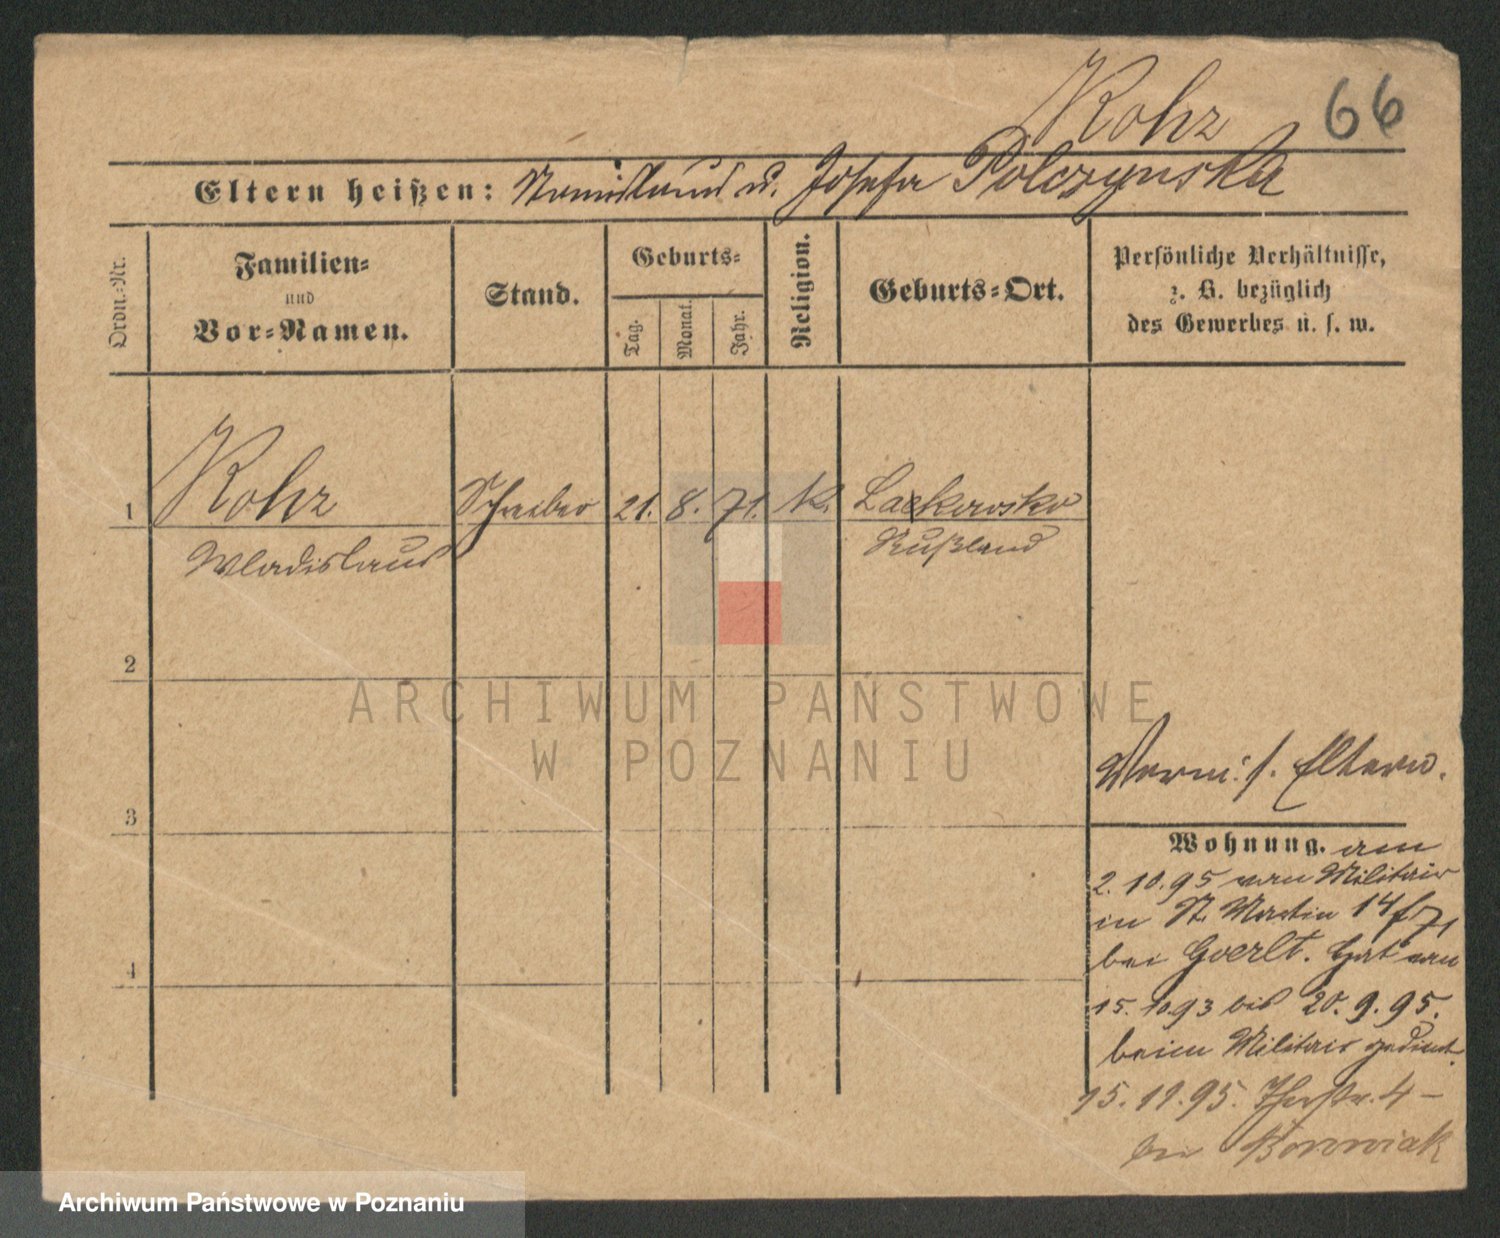 Rohr 66
Eltern heißen: Stanislaus u. Josefa Polczynska
Ordn.-Nr.
Familien-
und
Vor-Namen.
Stand.
Geburts-
Tag.
Monat.
Jahr.
Religion.
Geburts-Ort.
Persönliche Verhältnisse,
z. B. bezüglich
des Gewerbes u. s. w.
1 Rohr Schreiber 21. 8. 71. K. Lackowsko
Wladislaus Rußland
2
3
4
s. Eltern.
Wohnung. am
2. 10. 95 vom Militair
in St. Martin 14
bei Goerlt. Hat vom
15. 10 93 bis 20. 9. 95.
beim Militair gedient.
15. 11. 95. 4 –
bei Borowiak
ARCHIWUM PAŃSTWOWE
W POZNANIU
Archiwum Państwowe w Poznaniu